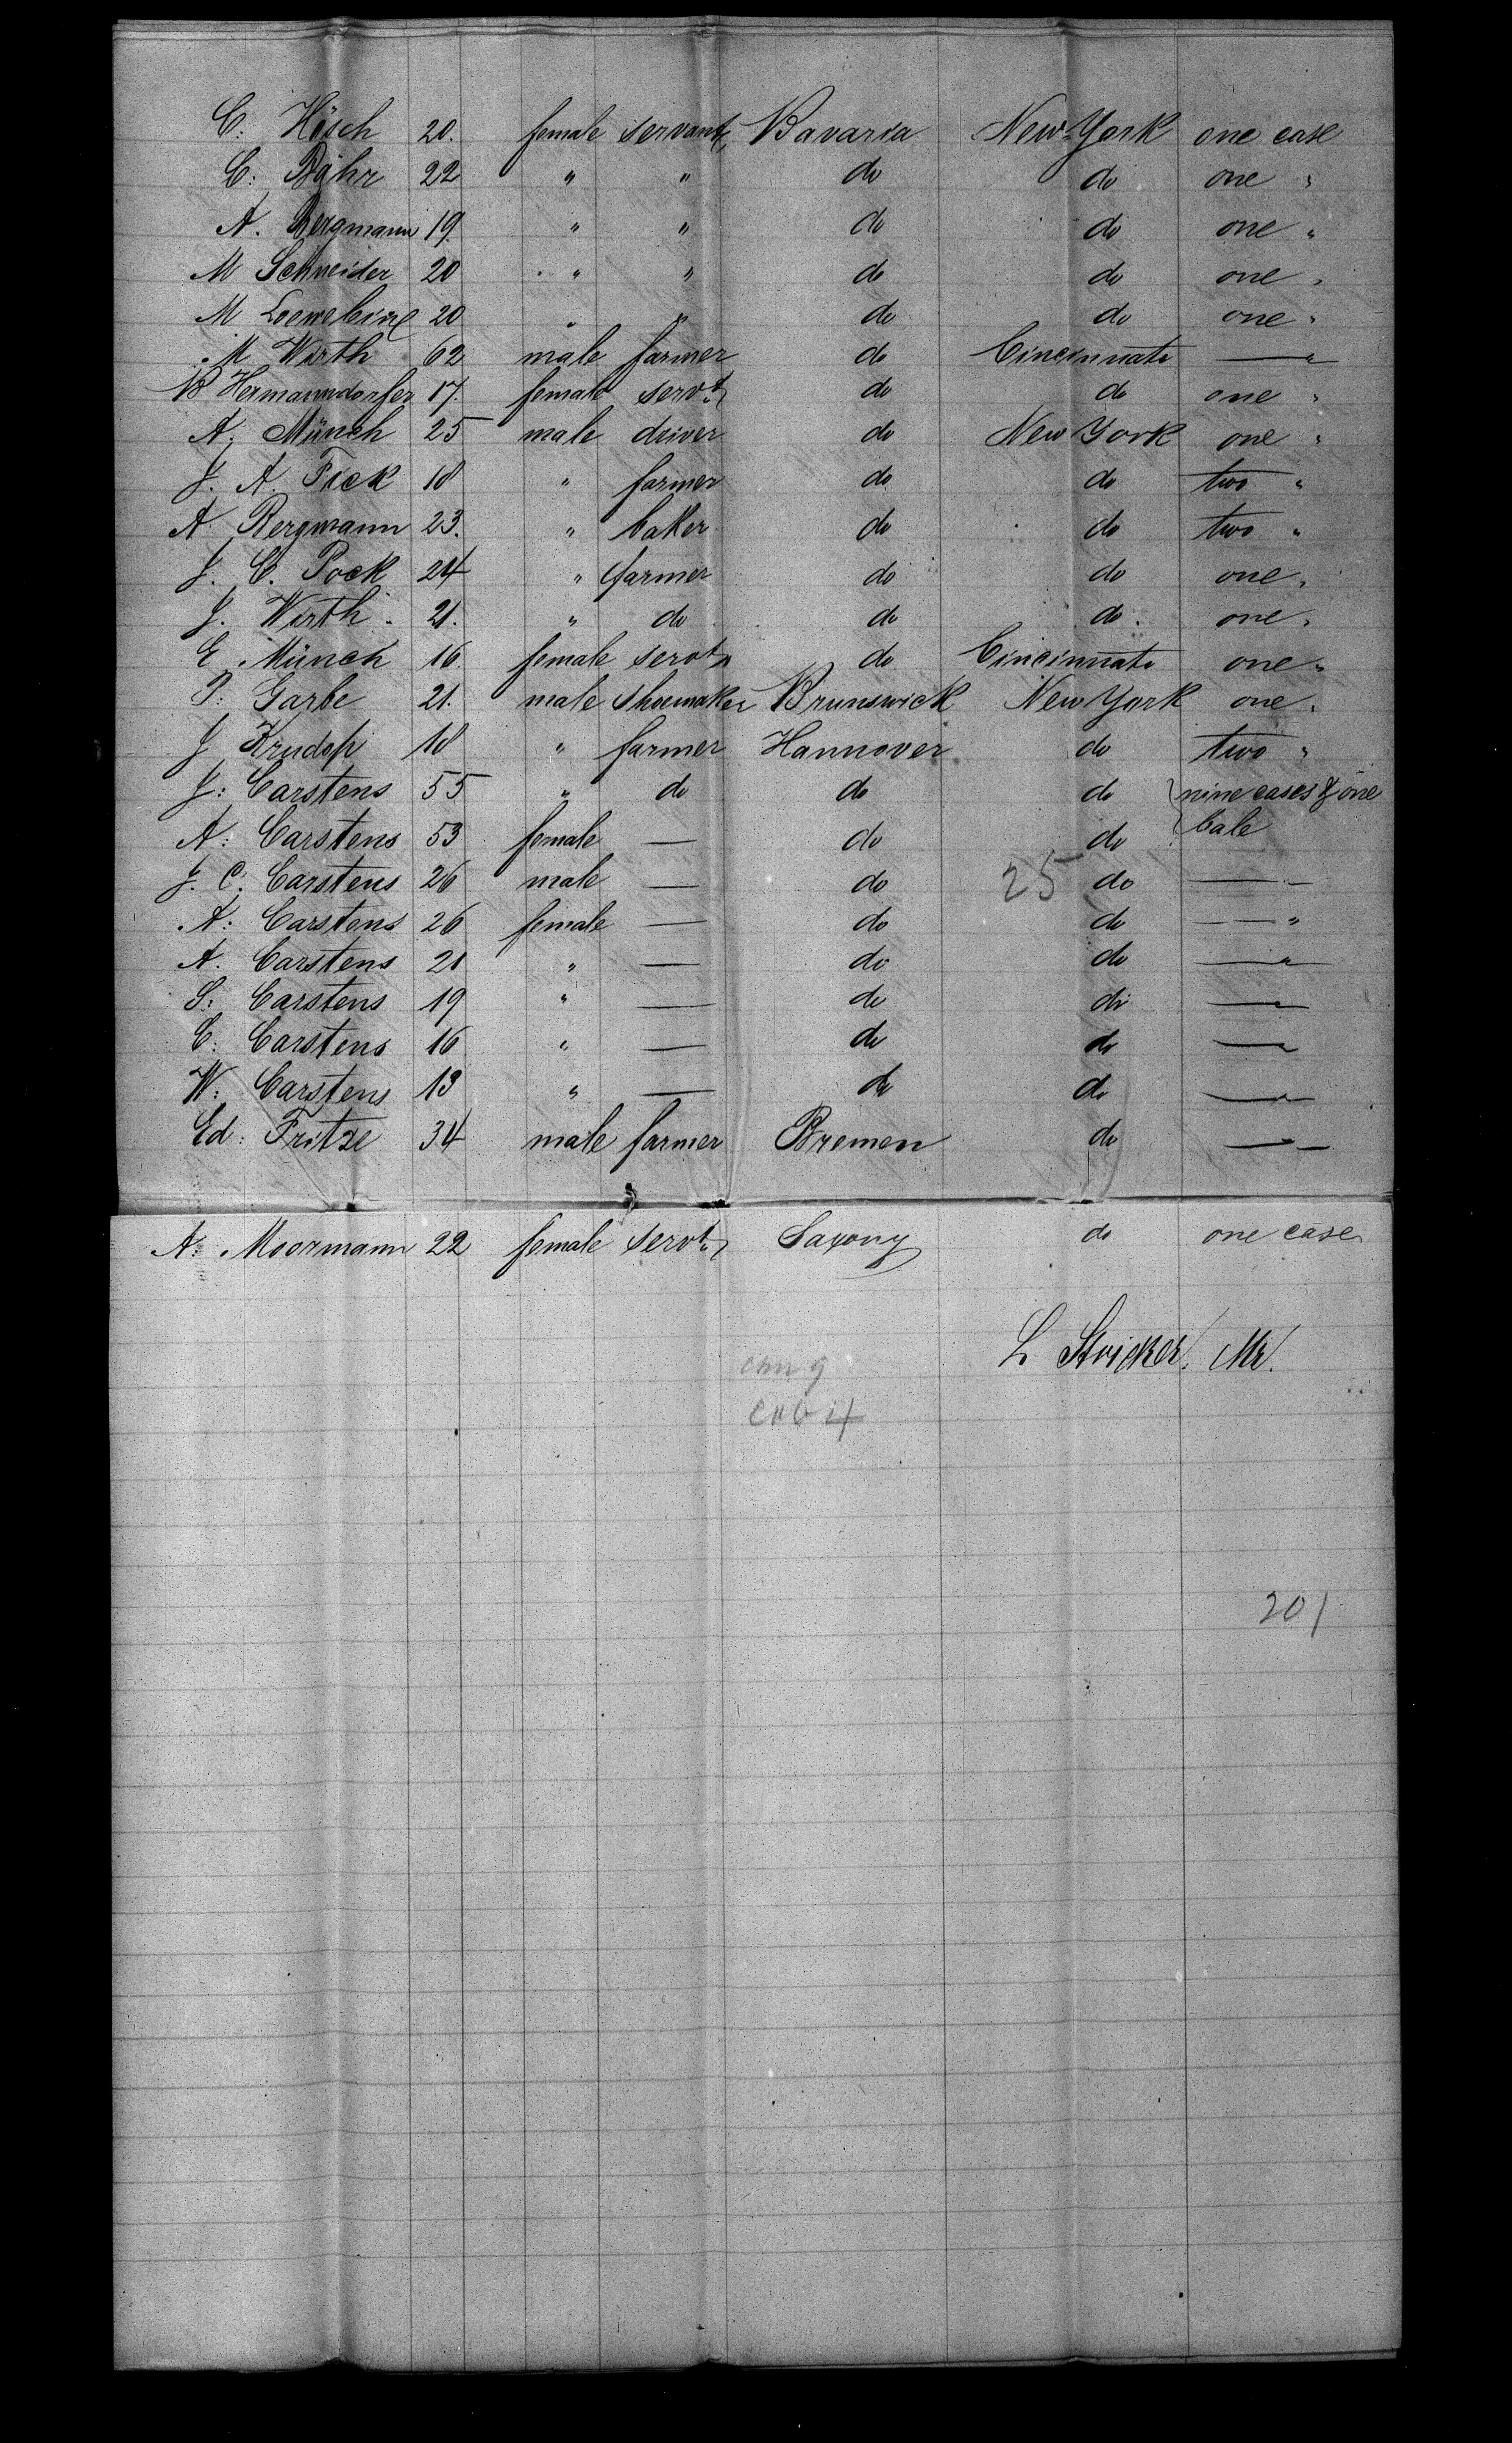 C: Hösch 20. female servant, Bavaria New-York one case
C: Bähr 22 " " do do one "
A. Bergmann 19. " " do do one "
M Schneider 20 " " do do one "
M 20 " " do do one "
M Wirth 62 male farmer do Cincinnati — "
B Hermanndorfer 17. female servt. do do one "
A. Münch 25 male driver do New York one "
J. A. Fick 18 " farmer do do two "
A. Bergmann 23. " baker do do two "
J. C. Pock 24 " farmer do do one "
J. Wirth 21. " do do do one "
E Münch 16. female servt. do Cincinnati one "
P: Garbe 21. male shoemaker Brunswick New York one "
J Krudop 18 " farmer Hannover do two "
J: Carstens 55 " do do do nine cases & one
A: Carstens 53 female — do do bale
J. C. Carstens 26 male — do 25 do —
A: Carstens 26 female — do do — "
A. Carstens 21 " — do do — "
S: Carstens 19 " — do do — "
C: Carstens 16 " — do do — "
W: Carstens 13 " — do do — "
Ed: Fritze 34 male farmer Bremen do — "
A: Moormann 22 female servt. Saxony do one case
L Stricker, Mr.
201